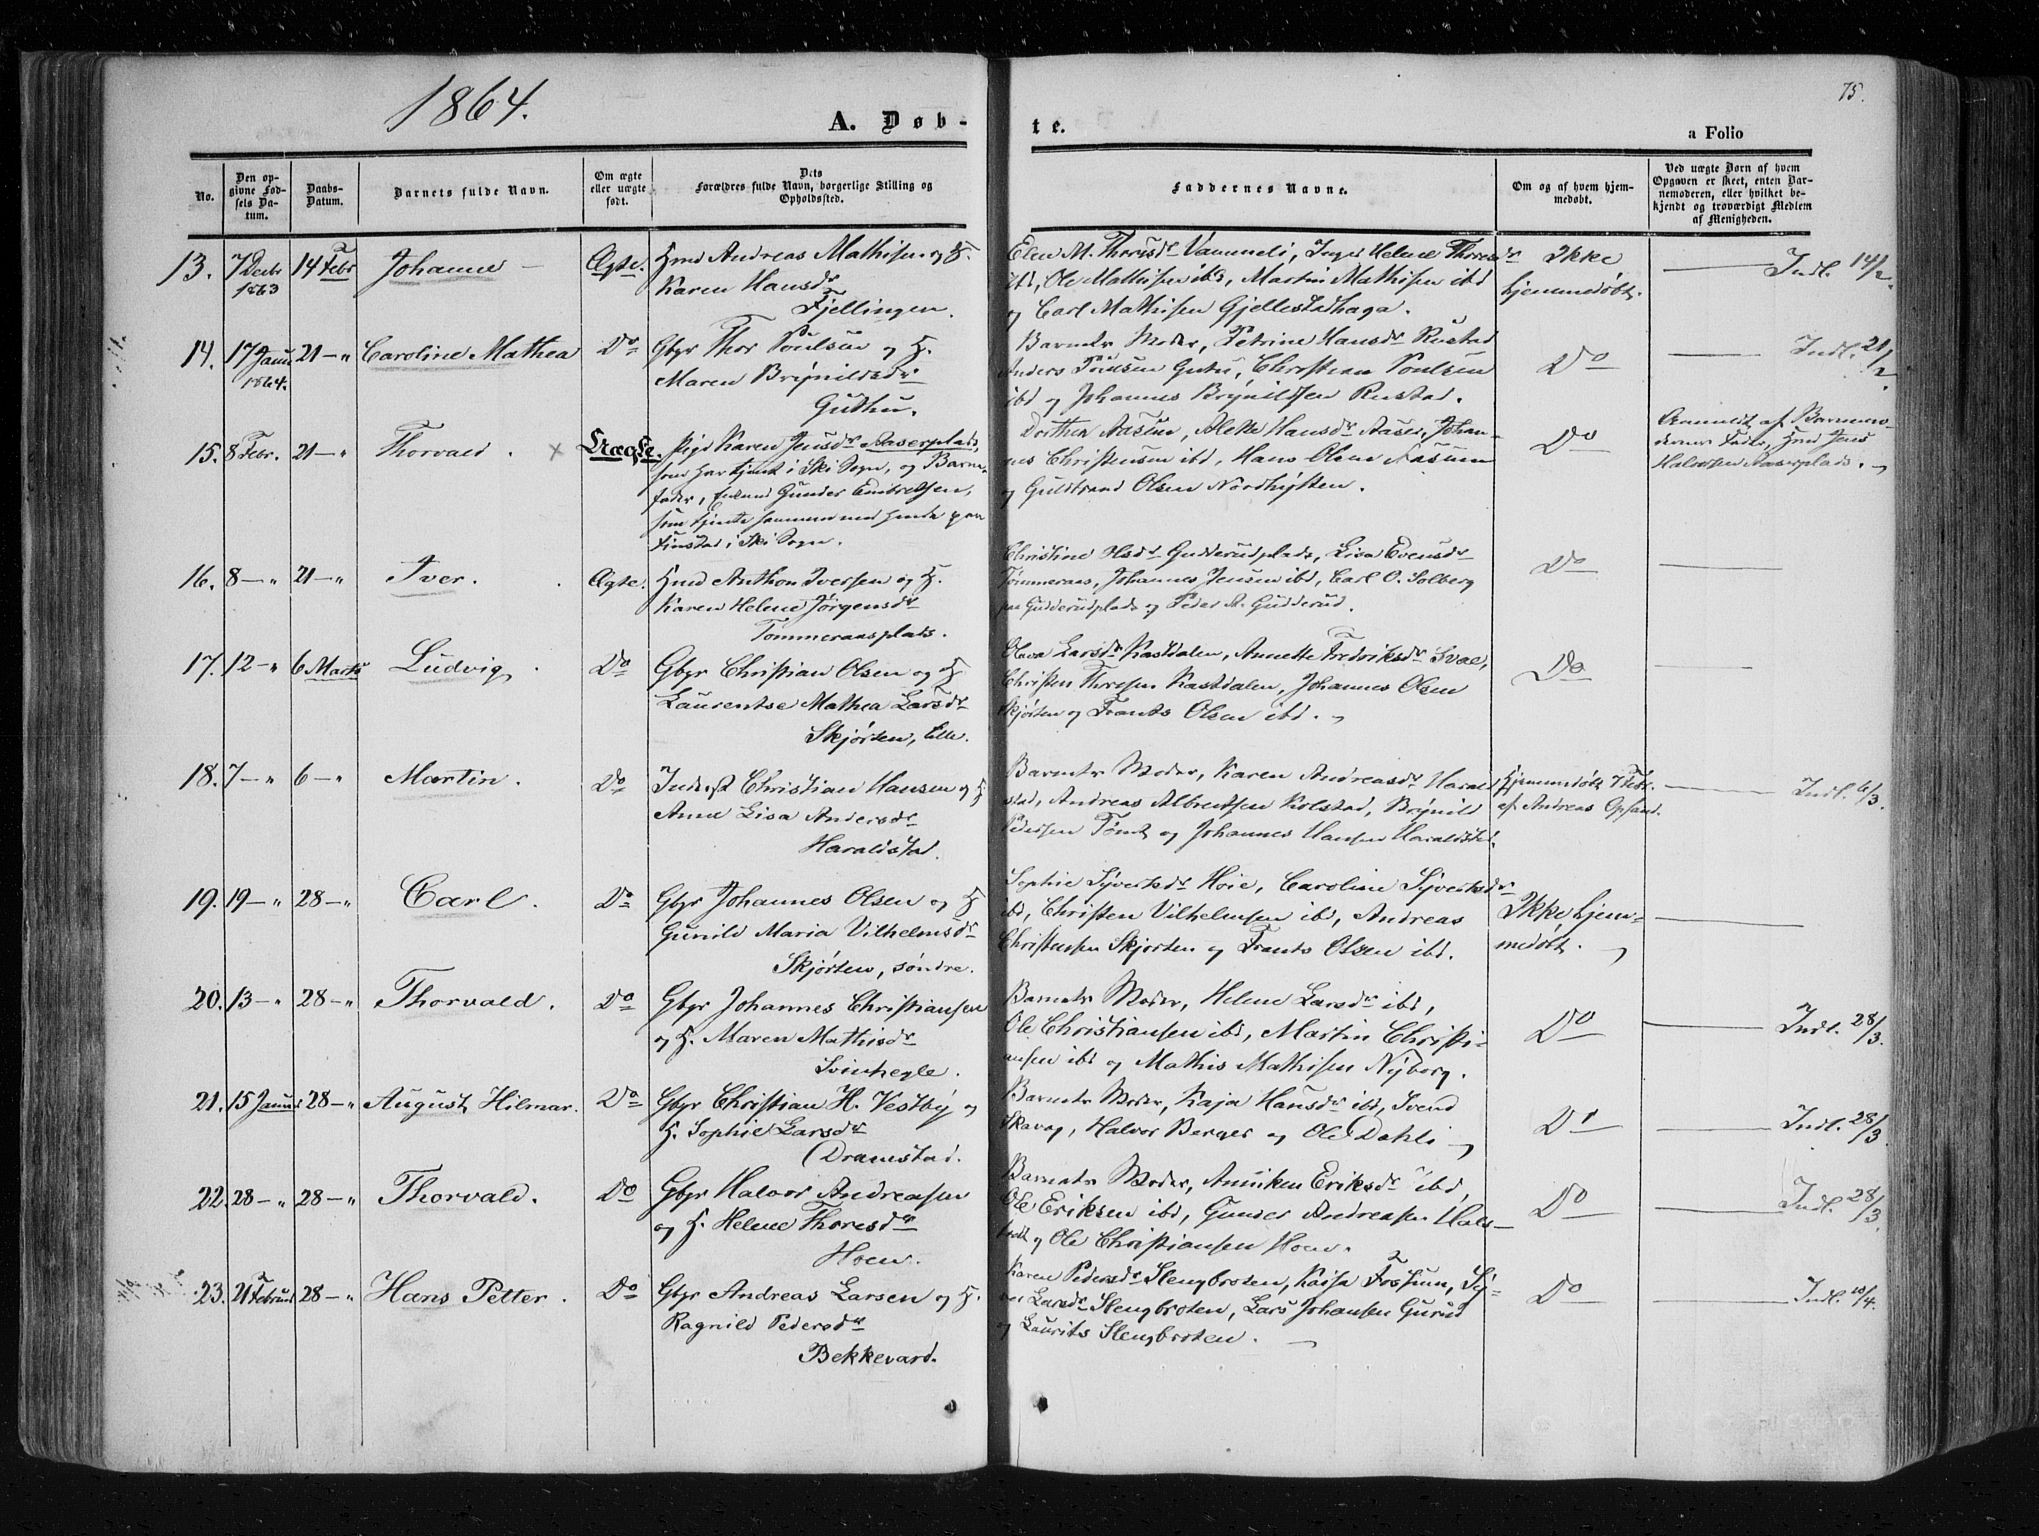 1864.
75.
A. Døb-
te.
a Folio
No.
Den op-
givne Fød-
sels Da-
tum.
Daabs-
Datum.
Barnets fulde Navn.
Om ægte
eller uægte
født.
Dets
Forældres fulde Navn, borgerlige Stilling og
Opholdssted.
Faddernes Navne.
Om og af hvem hjem-
medøbt.
Ved uægte Børn af hvem
Opgaven er skeet, enten Bar-
nemoderen, eller hvilket be-
kjendt og troværdigt Medlem
af Menigheden.
13. 7 Decbr 14 Febr Johanne Ægte. Hmd Andreas Mathisen og H.
1863
Karen Hansdr
Fjellingen.
Elen M. Thorisdr Vammeli, Inger Helene Thoresdr
ibd, Ole Mathisen ibd, Martin Mathisen ibd
og Carl Mathisen Gjellestadhaga.
Ikke
hjemmedøbt.
Indl. 14/2.
14. 17 Janu 21 — " Caroline Mathea Do Gbr Thor Poulsen og H.
1864.
Maren Brynildsdr
Guthu.
Barnets Moder, Petrine Hansdr Rustad
Anders Poulsen Gutu, Christian Poulsen
ibd og Johannes Brynildsen Rustad.
Do
Indl. 21/2.
15. 8 Febr. 21 — " Thorvald. × Uægte. Pige Karen Jensdr Aaserplads,
som har tjent i Ski Sogn, og Barne-
fader, Gunder
som tjente sammen med hende paa
Finstad i Ski Sogn.
Dorthea Aasen, Alette Hansdr Aaser, Johan-
nes Christensen ibd, Hans Olsen Aasum
og Guldbrand Olsen Nordhytten.
Do
Anmeldt af Barnemo-
derens Fader, Hmd Jens
Halvorsen Aaserplads.
16. 8 — " 21 — " Iver. Ægte. Hmd Anthon Iversen og H.
Karen Helene Jørgensdr
Tømmeraasplads.
Christine Olsdr Gudderudplads, Lisa Evensdr
Tømmeraas, Johannes Jensen ibd, Carl O. Solberg
paa Gudderudplads og Peder A. Gudderud.
Do
17. 12 — " 6 Marts Ludvig. Do Gbr Christian Olsen og H.
Laurentse Mathea Larsdr
Skjørten, Elle.
Olava Larsdr Kastdalen, Annette Fredriksdr Svae,
Christen Thoresen Kastdalen, Johannes Olsen
Skjørten og Frants Olsen ibd.
Do
18. 7 — " 6 — " Martin. Do Inderst Christian Hansen og H
Anne Lisa Andersdr
Haraldstad.
Barnets Moder, Karen Andreasdr Harald
stad, Andreas Albretsen Kolstad, Brynild
Pedersen Tømt og Johannes Hansen Haraldstad.
Hjemmedøbt 7 Febr.
af Andreas Opsand.
Indl. 6/3.
19. 19 — " 28 — " Carl. Do Gbr Johannes Olsen og H
Gunild Maria Vilhelmsdr
Skjørten, søndre.
Sophie Syvertsdr Hoie, Caroline Syvertsdr
ibd, Christen Vilhelmsen ibd, Andreas
Christensen Skjørten og Frants Olsen ibd.
Ikke hjem-
medøbt.
20. 13 — " 28 — " Thorvald. Do Gbr Johannes Christiansen
og H. Maren Mathisdr
Svinhegle.
Barnets Moder, Helene Larsdr ibd,
Ole Christiansen ibd, Martin Christi-
ansen ibd og Mathis Mathisen Nyborg.
Do
Indl. 28/3.
21. 15 Januar 28 — " August Hilmar. Do Gbr Christian H. Vestby og
H. Sophie Larsdr
Dramstad.
Barnets Moder, Kaja Hansdr ibd, Svend
Skavag, Halvor Berger og Ole Dahli
Do
Indl. 28/3
22. 28 — " 28 — " Thorvald. Do Gbr Halvor Andreasen
og H. Helene Thoresdr
Hoen.
Barnets Moder, Anniken Eriksdr ibd,
Ole Eriksen ibd, Gunder Andreasen Hals-
og Ole Christiansen Hoen.
Do
Indl. 28/3.
23. 21 Februar 28 — " Hans Petter. Do Gbr Andreas Larsen og H.
Ragnild Pedersdr
Bekkevard.
Karen Pedersdr Slengbroten, Kaisa Fossum, Sy-
ver Larsdr Slengbroten, Lars Johansen Gurud
og Laurits Slengbroten.
Do
Indl. 10/4.